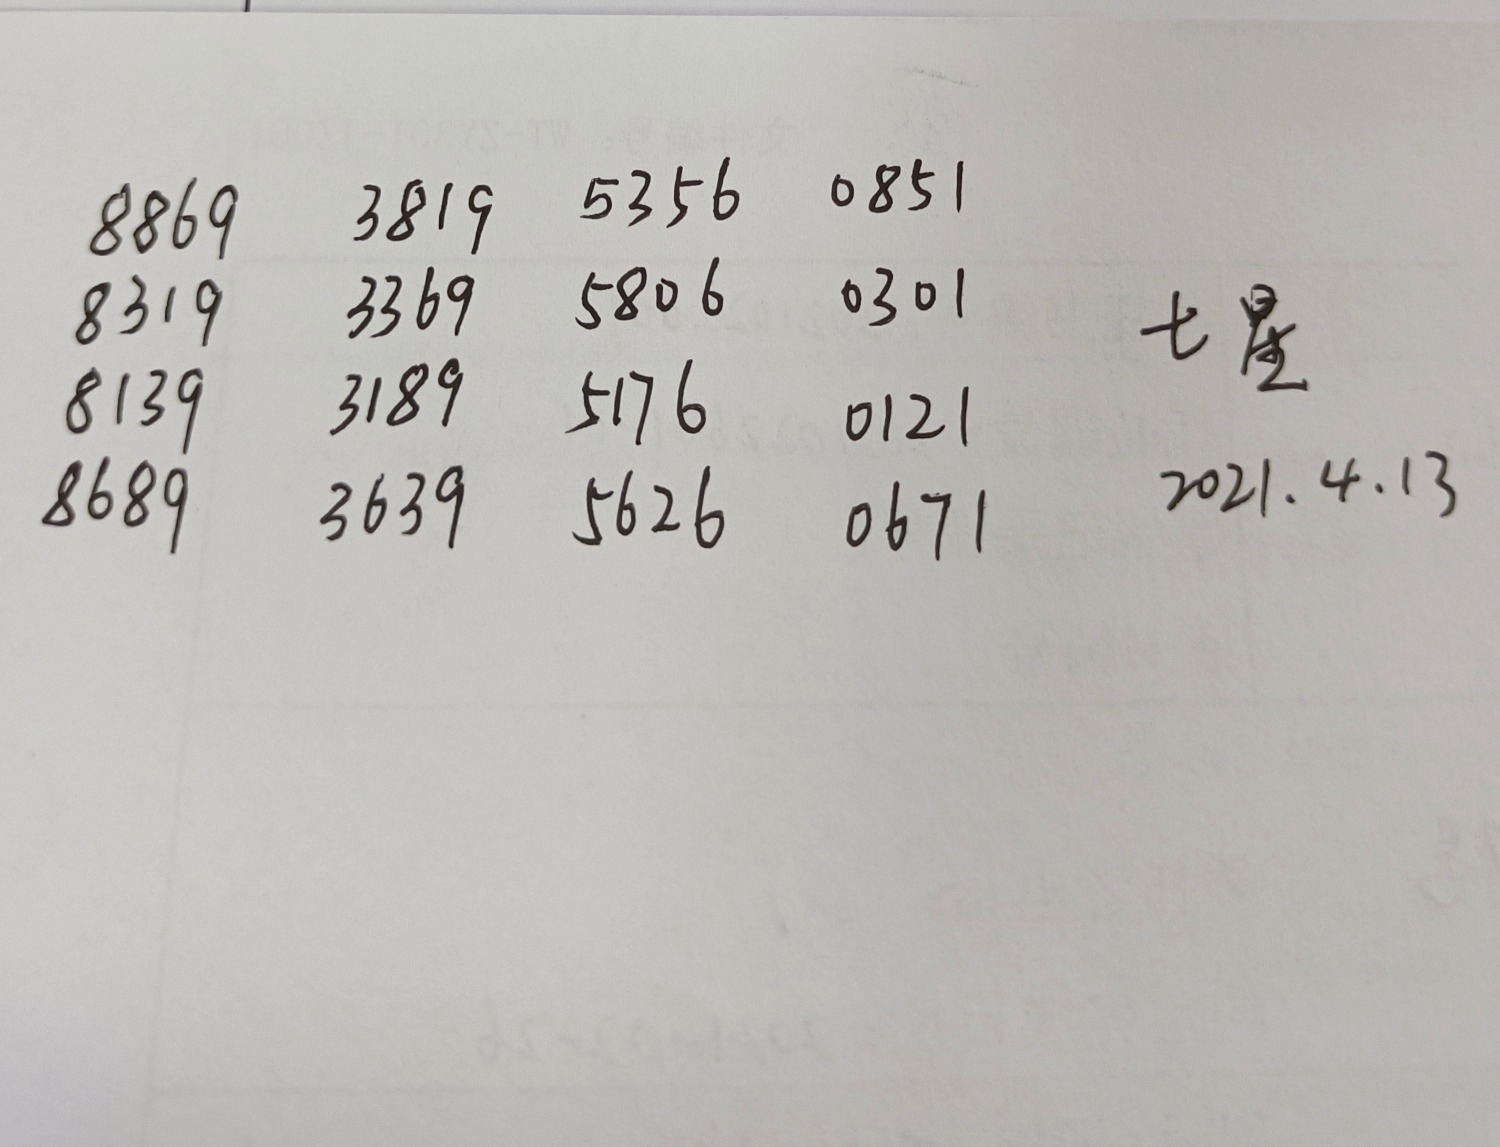 8869 3819 5356 0851
8319 3369 5806 0301
七星
8139 3189 5176 0121
8689 3639 5626 0671
2021.4.13